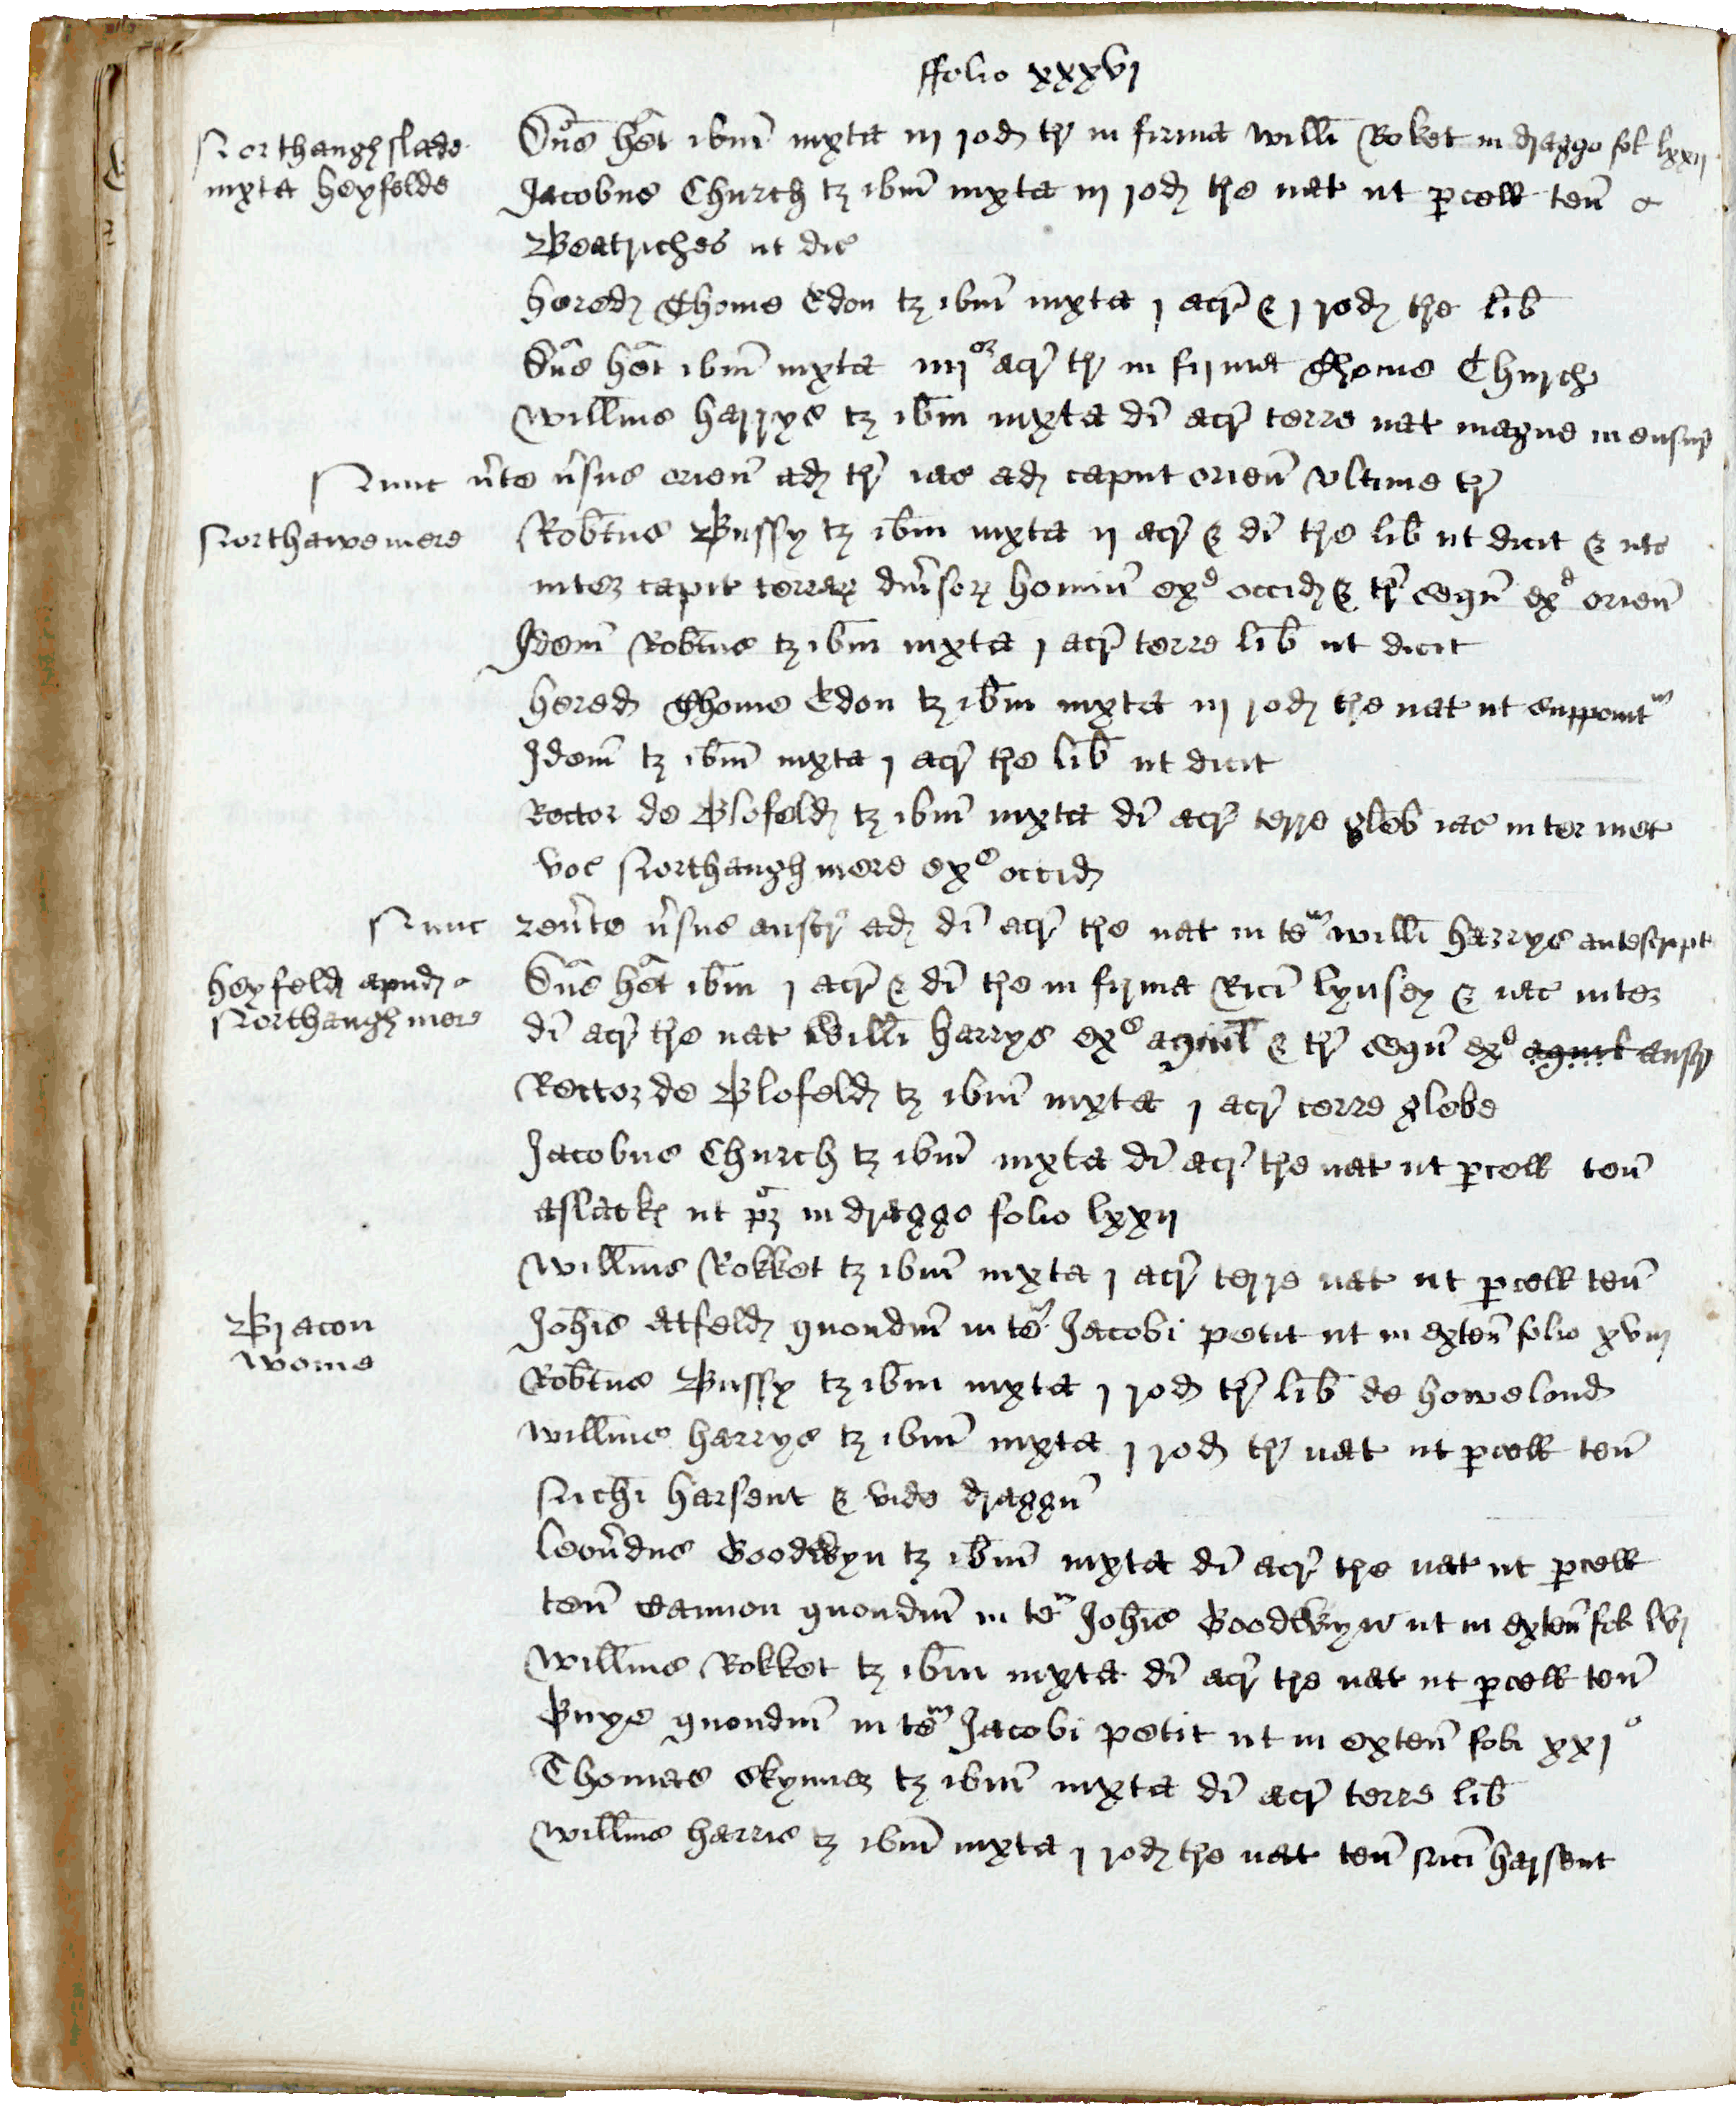 ffolio xxxvj
Northaugh slade
iuxta heyfelde
Dñs het ibm̄ iuxta iij rod tr̄ in firma willi Roket in draggo fol lxxij
Jacobus Church tȝ ibm̄ iuxta iij rod tre nat ut pcell ten̄
Beatriches ut dic
hered Thome Edon tȝ ibm̄ iuxta j acr̄ & j rod tre lib̄
Dñs het ibm̄ iuxta iiij or acr̄ tr̄ in firma Thome Church
willms harrys tȝ ibm̄ iuxta di acr̄ terre nat magne mensur̄
Nunc v̄te v̄sus orien̄ ad tr̄ iac ad caput orien̄ ultime tr̄
Northawe mere
Robtus Bussy tȝ ibm̄ iuxta ij acr̄ & di tre lib ut dicit &
inter capit terrar̄ diūsor̄ hominū exd occid & tr̄ seqū exd orien̄
Idem̄ Robtus tȝ ibm̄ iuxta j acr̄ terre lib̄ ut dicit
hered Thome Edon tȝ ibm̄ iuxta iij rod tre nat ut supponit
Idem̄ tȝ ibm̄ iuxta j acr̄ tre lib̄ ut dicit
Rector de Blofeld tȝ ibm̄ iuxta di acr̄ terre gleb iac inter met
voc Northaugh mere exe occid
Nunc reūte v̄sus austr̄ ad di acr̄ tre nat in te willi harrys antescript
heyfeld apud
Northaugh mere
Dñs het ibm̄ j acr̄ & di tre in firma Rici lynsey & iac inter
di acr̄ tre nat willi harrys exe aquil & tr̄ seqū exd aquil austr
Rector de Blofeld tȝ ibm̄ iuxta j acr̄ terre glebe
Jacobus Church tȝ ibm̄ iuxta di acr̄ tre nat ut pcell ten̄
aslack ut pȝ in dragge folio lxxij
willms Rokket tȝ ibm̄ iuxta j acr̄ terre nat ut pcell ten̄
Bracon
wome
Johis atfeld quondm̄ in te Jacobi petit ut in exten̄ folio xviij
Robtus Bussy tȝ ibm̄ iuxta j rod tr̄ lib̄ de howelond
willms harrys tȝ ibm̄ iuxta j rod tr̄ nat ut pcell ten̄
Nichi harsent & vide draggū
leon̄dus Goodwyn tȝ ibm̄ iuxta di acr̄ tre nat ut pcell
ten̄ Cannon quondm̄ in te Johis Goodwyn ut in exten̄ fol lvj
willms Rokket tȝ ibm̄ iuxta di acr̄ tre nat ut pcell ten̄
Buys quondm̄ in te Jacobi petit ut in exten̄ foli xxj o
Thomas Skynner tȝ ibm̄ iuxta di acr̄ terre lib̄
willms harris tȝ ibm̄ iuxta j rod tre nat ten̄ Nici harsent